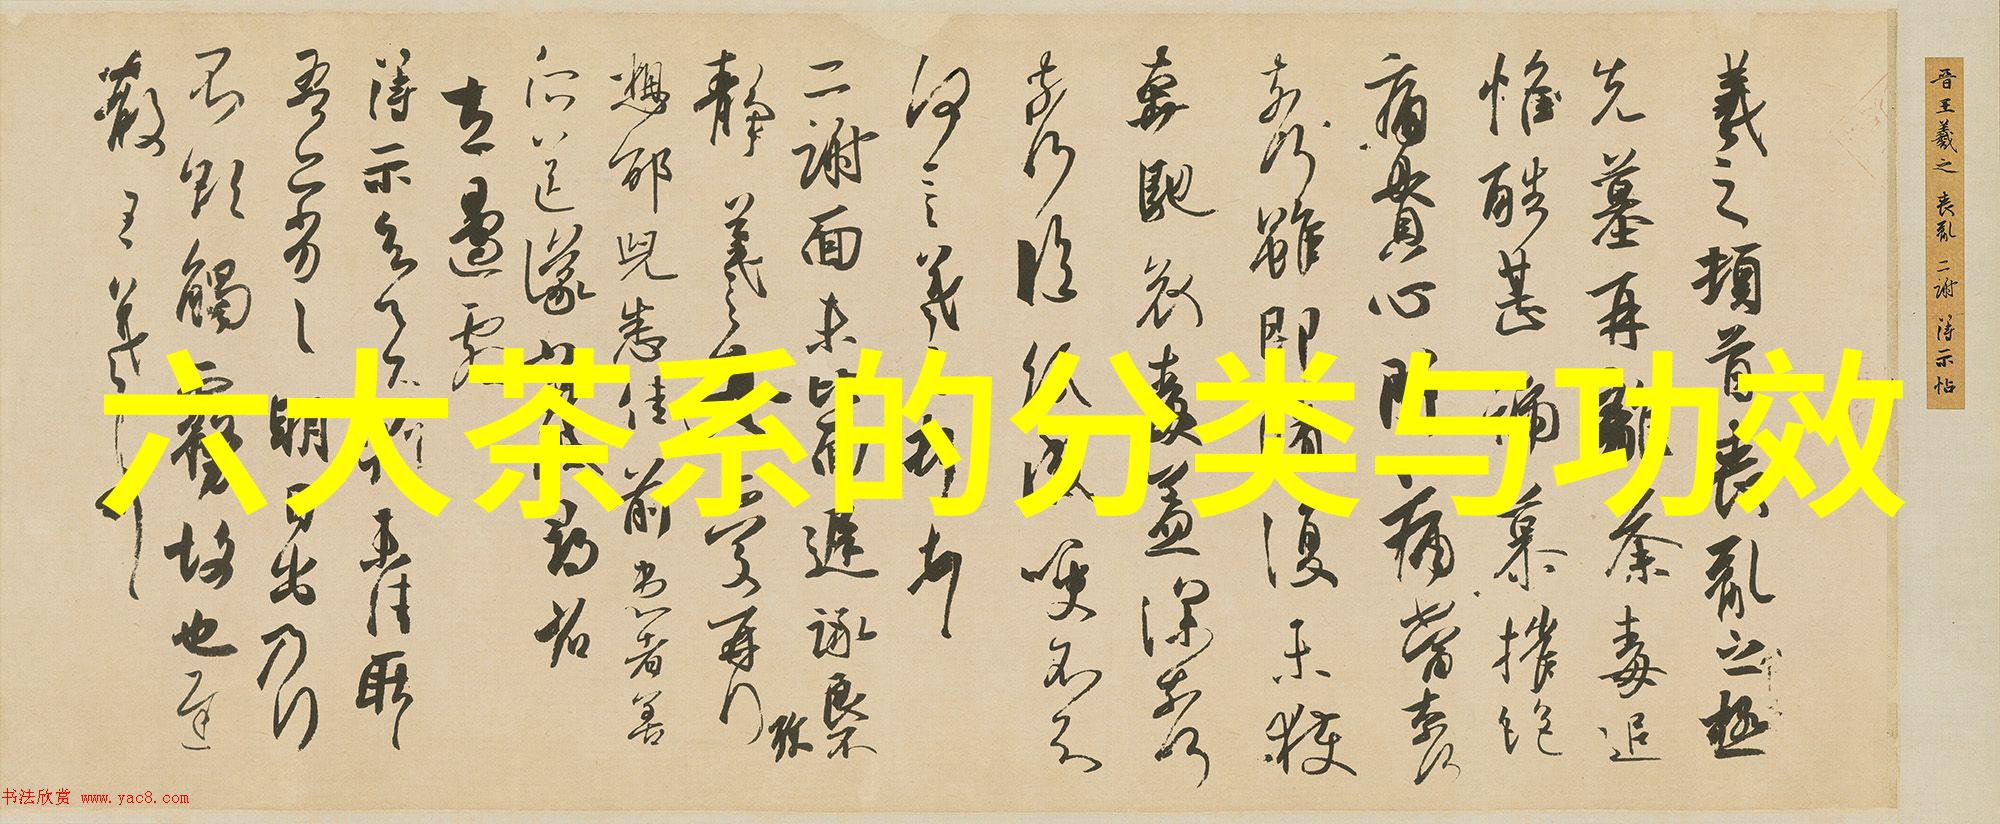 羲之頓首喪亂之極
先墓再離荼毒追
惟酷甚號慕摧絕
痛貫心肝痛當奈何
奈何雖即脩復未獲
奔馳哀毒益深奈何
奈何臨紙感哽不知
何言羲之頓首
二謝面未比面遲詠良不
靜羲之女愛再拜
想邰兒悉佳前患者善
得示知足下猶未佳耿耿
吾亦劣劣明日出乃行
不欲觸霧故也遲
散王羲之頓首
晉王羲之 喪亂 二謝 得示帖
六大茶系的分类与功效
书法欣赏 www.yac8.com